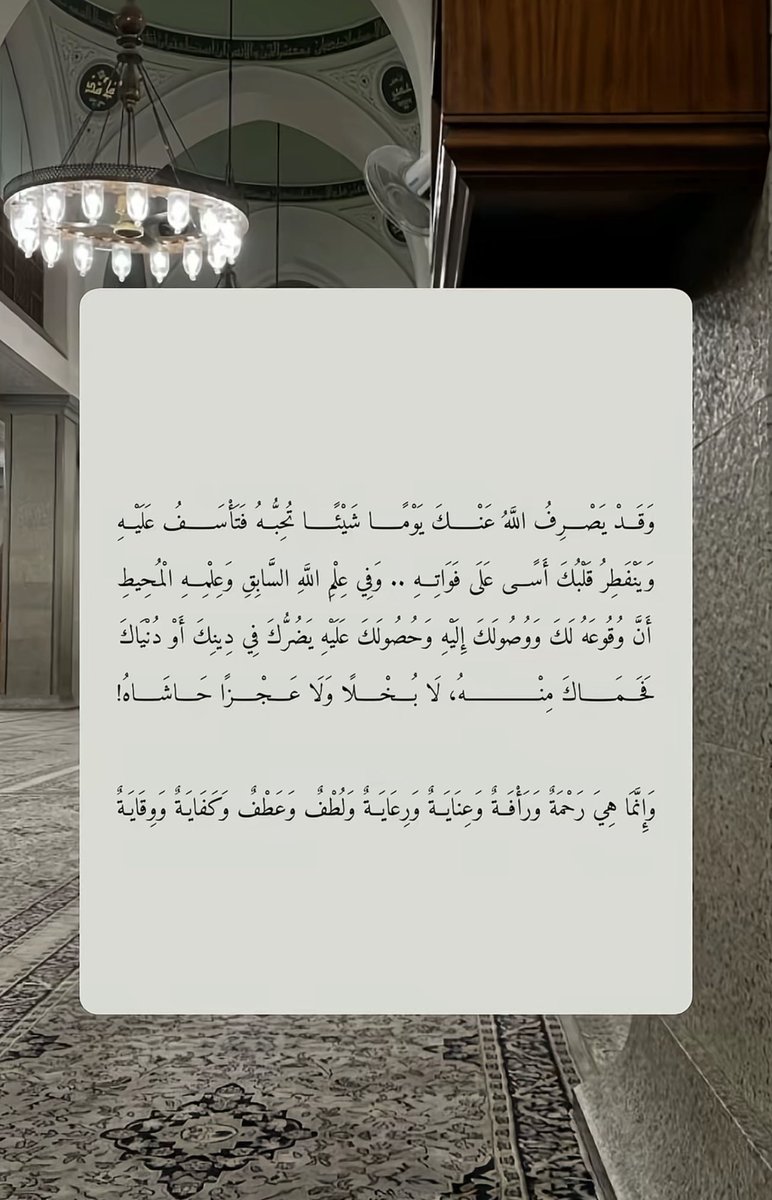 وَقَدْ يَصْرِفُ اللَّهُ عَنْكَ يَوْمًا شَيْئًا تُحِبُّهُ فَتَأْسَفُ عَلَيْهِ
وَيَنْفَطِرُ قَلْبُكَ أَسًى عَلَى فَوَاتِهِ .. وَفِي عِلْمِ اللَّهِ السَّابِقِ وَعِلْمِهِ الْمُحِيطِ
أَنَّ وُقُوعَهُ لَكَ وَوُصُولَكَ إِلَيْهِ وَحُصُولَكَ عَلَيْهِ يَضُرُّكَ فِي دِينِكَ أَوْ دُنْيَاكَ
فَحَمَاكَ مِنْهُ، لَا بُخْلًا وَلَا عَجْزًا حَاشَاهُ!
وَإِنَّمَا هِيَ رَحْمَةٌ وَرَأْفَةٌ وَعِنَايَةٌ وَرِعَايَةٌ وَلُطْفٌ وَعَطْفٌ وَكَفَايَةٌ وَوِقَايَةٌ